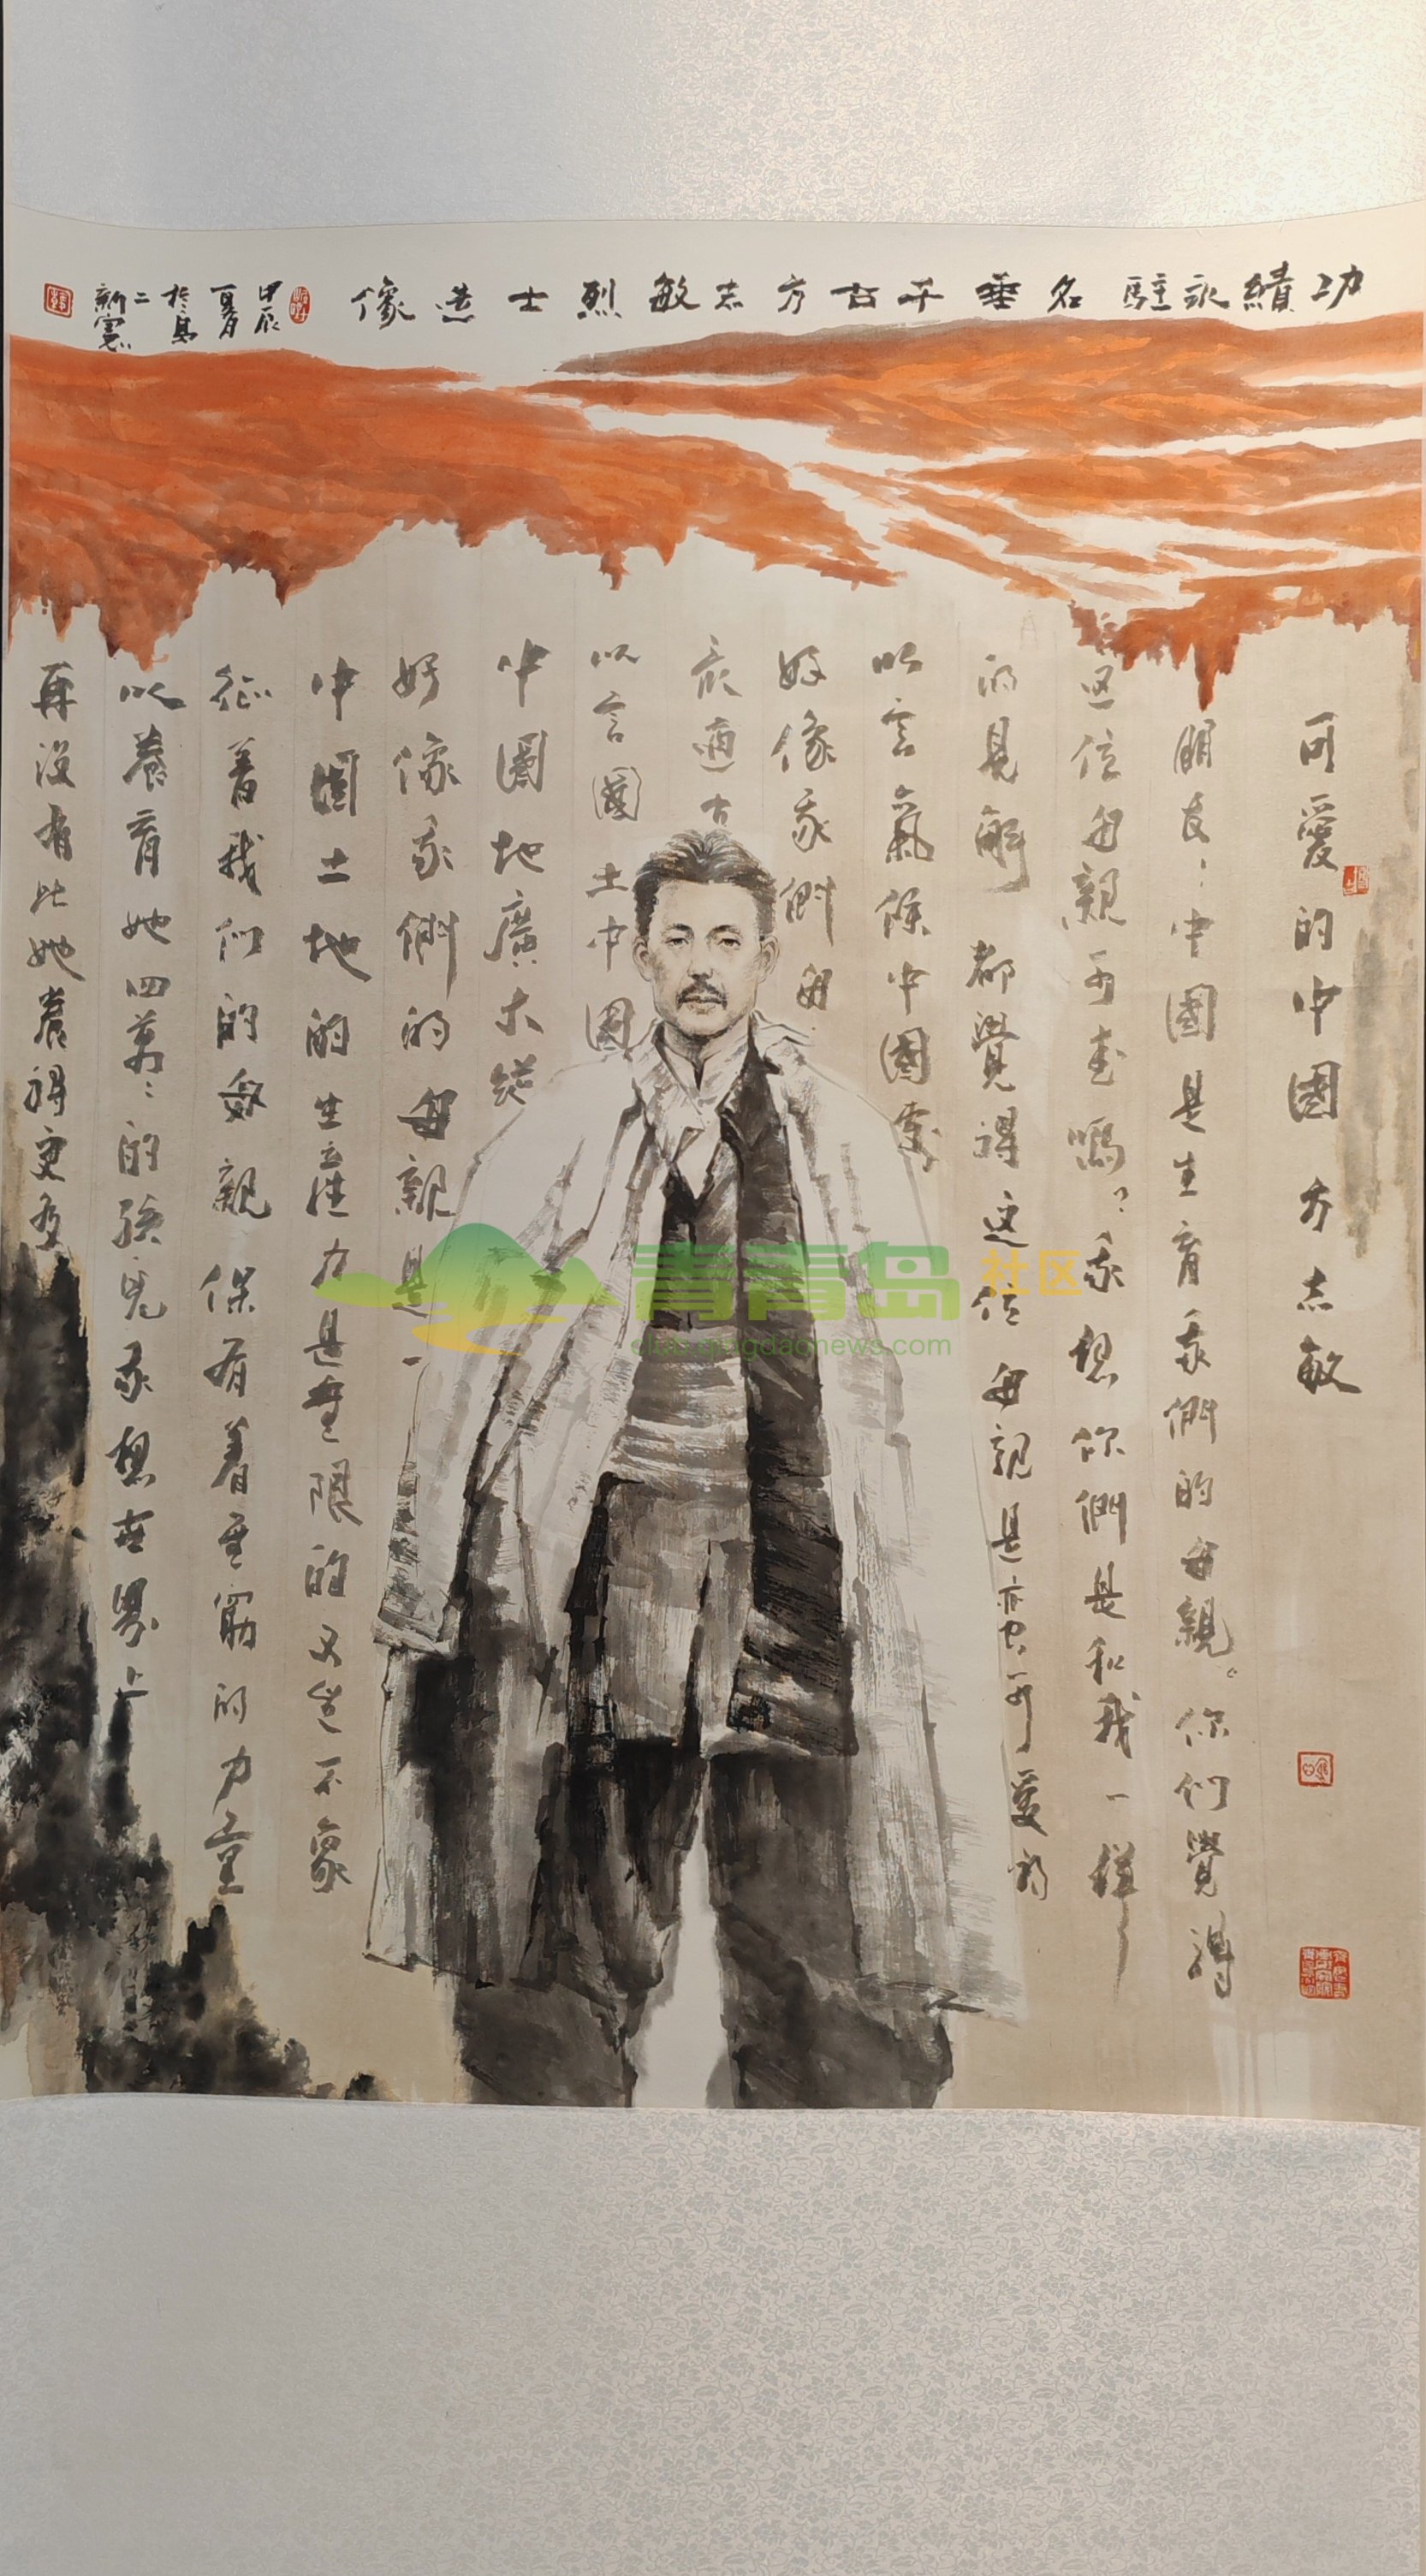 功績永駐名垂千古方志敏烈士造像
甲辰
夏月
於島
二
新憲
可愛的中國 方志敏
朋友：中國是生育我們的母親。你们覺得
这位母親可愛嗎？我想你們是和我一样
的見解 都覺得这位母親是蛮可愛的
以言氣候中國處
好像我們母
於適古
以言國土中國
中國地廣
好像我們的母親是一
中國土地的生產力是無限的 又豈不象
征着我们的母親保有着無窮的力量
以養育她四萬萬的孩兒 我想世界上
再没有比她養得更多
青青岛 社区
club.qingdaonews.com